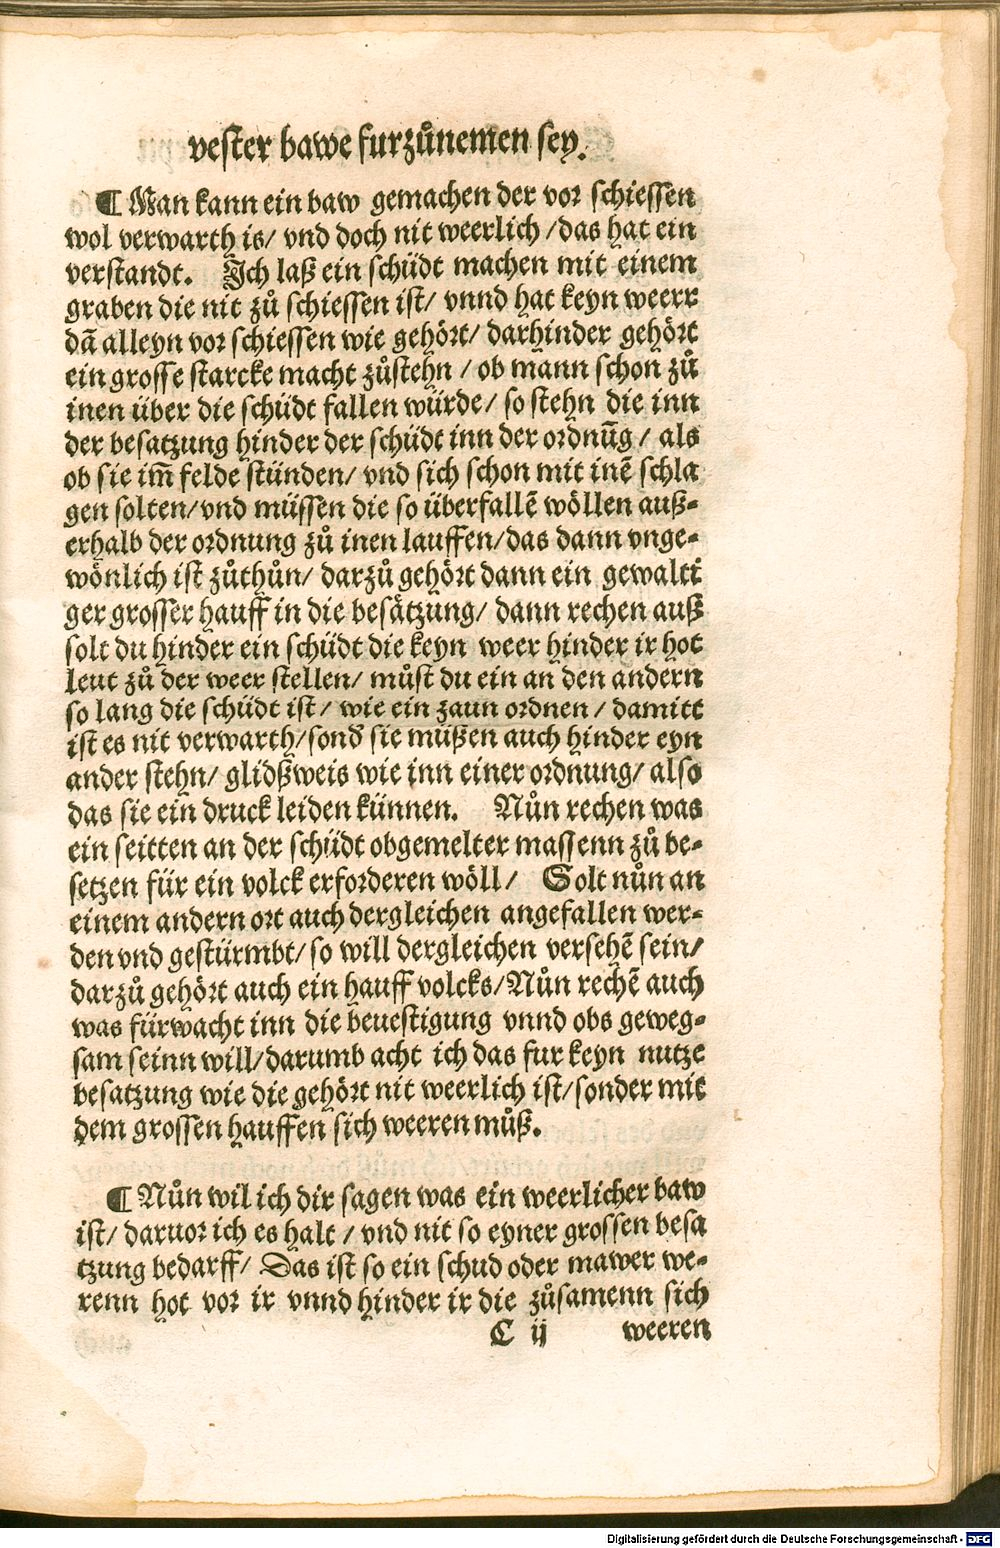 vester bawe furzůnemen sey.
¶ Man kann ein baw gemachen der vor schiessen
wol verwarth is/ vnd doch nit weerlich /das hat ein
verstandt. Ich laß ein schüdt machen mit einem
graben die nit zů schiessen ist/ vnnd hat keyn weerr
dã alleyn vor schiessen wie gehört/ darhinder gehört
ein grosse starcke macht zůstehn / ob mann schon zů
inen über die schüdt fallen würde/ so stehn die inn
der besatzung hinder der schüdt inn der ordnũg / als
ob sie im̃ felde stünden/ vnd sich schon mit inẽ schla
gen solten/vnd müssen die so überfallẽ wöllen auß⸗
erhalb der ordnung zů inen lauffen/das dann vnge⸗
wönlich ist zůthůn/ darzů gehört dann ein gewalti
ger grosser hauff in die besätzung/ dann rechen auß
solt du hinder ein schüdt die keyn weer hinder ir hot
leut zů der weer stellen/ můst du ein an den andern
so lang die schüdt ist/ wie ein zaun ordnen / damitt
ist es nit verwarth/sond̃ sie müßen auch hinder eyn
ander stehn/ glidßweis wie inn einer ordnung/ also
das sie ein druck leiden künnen. Nůn rechen was
ein seitten an der schüdt obgemelter massenn zů be⸗
setzen für ein volck erforderen wöll/ Solt nůn an
einem andern ort auch dergleichen angefallen wer⸗
den vnd gestürmbt/ so will dergleichen versehẽ sein/
darzů gehört auch ein hauff volcks/Nůn rechẽ auch
was fürwacht inn die beuestigung vnnd obs geweg⸗
sam seinn will/darumb acht ich das fur keyn nutze
besatzung wie die gehört nit weerlich ist/sonder mit
dem grossen hauffen sich weeren můß.
¶ Nůn wil ich dir sagen was ein weerlicher baw
ist/ daruor ich es halt / vnd nit so eyner grossen besa
tzung bedarff/ Das ist so ein schud oder mawer we⸗
renn hot vor ir vnnd hinder ir die zůsamenn sich
C ij weeren
Digitalisierung gefördert durch die Deutsche Forschungsgemeinschaft - DFG